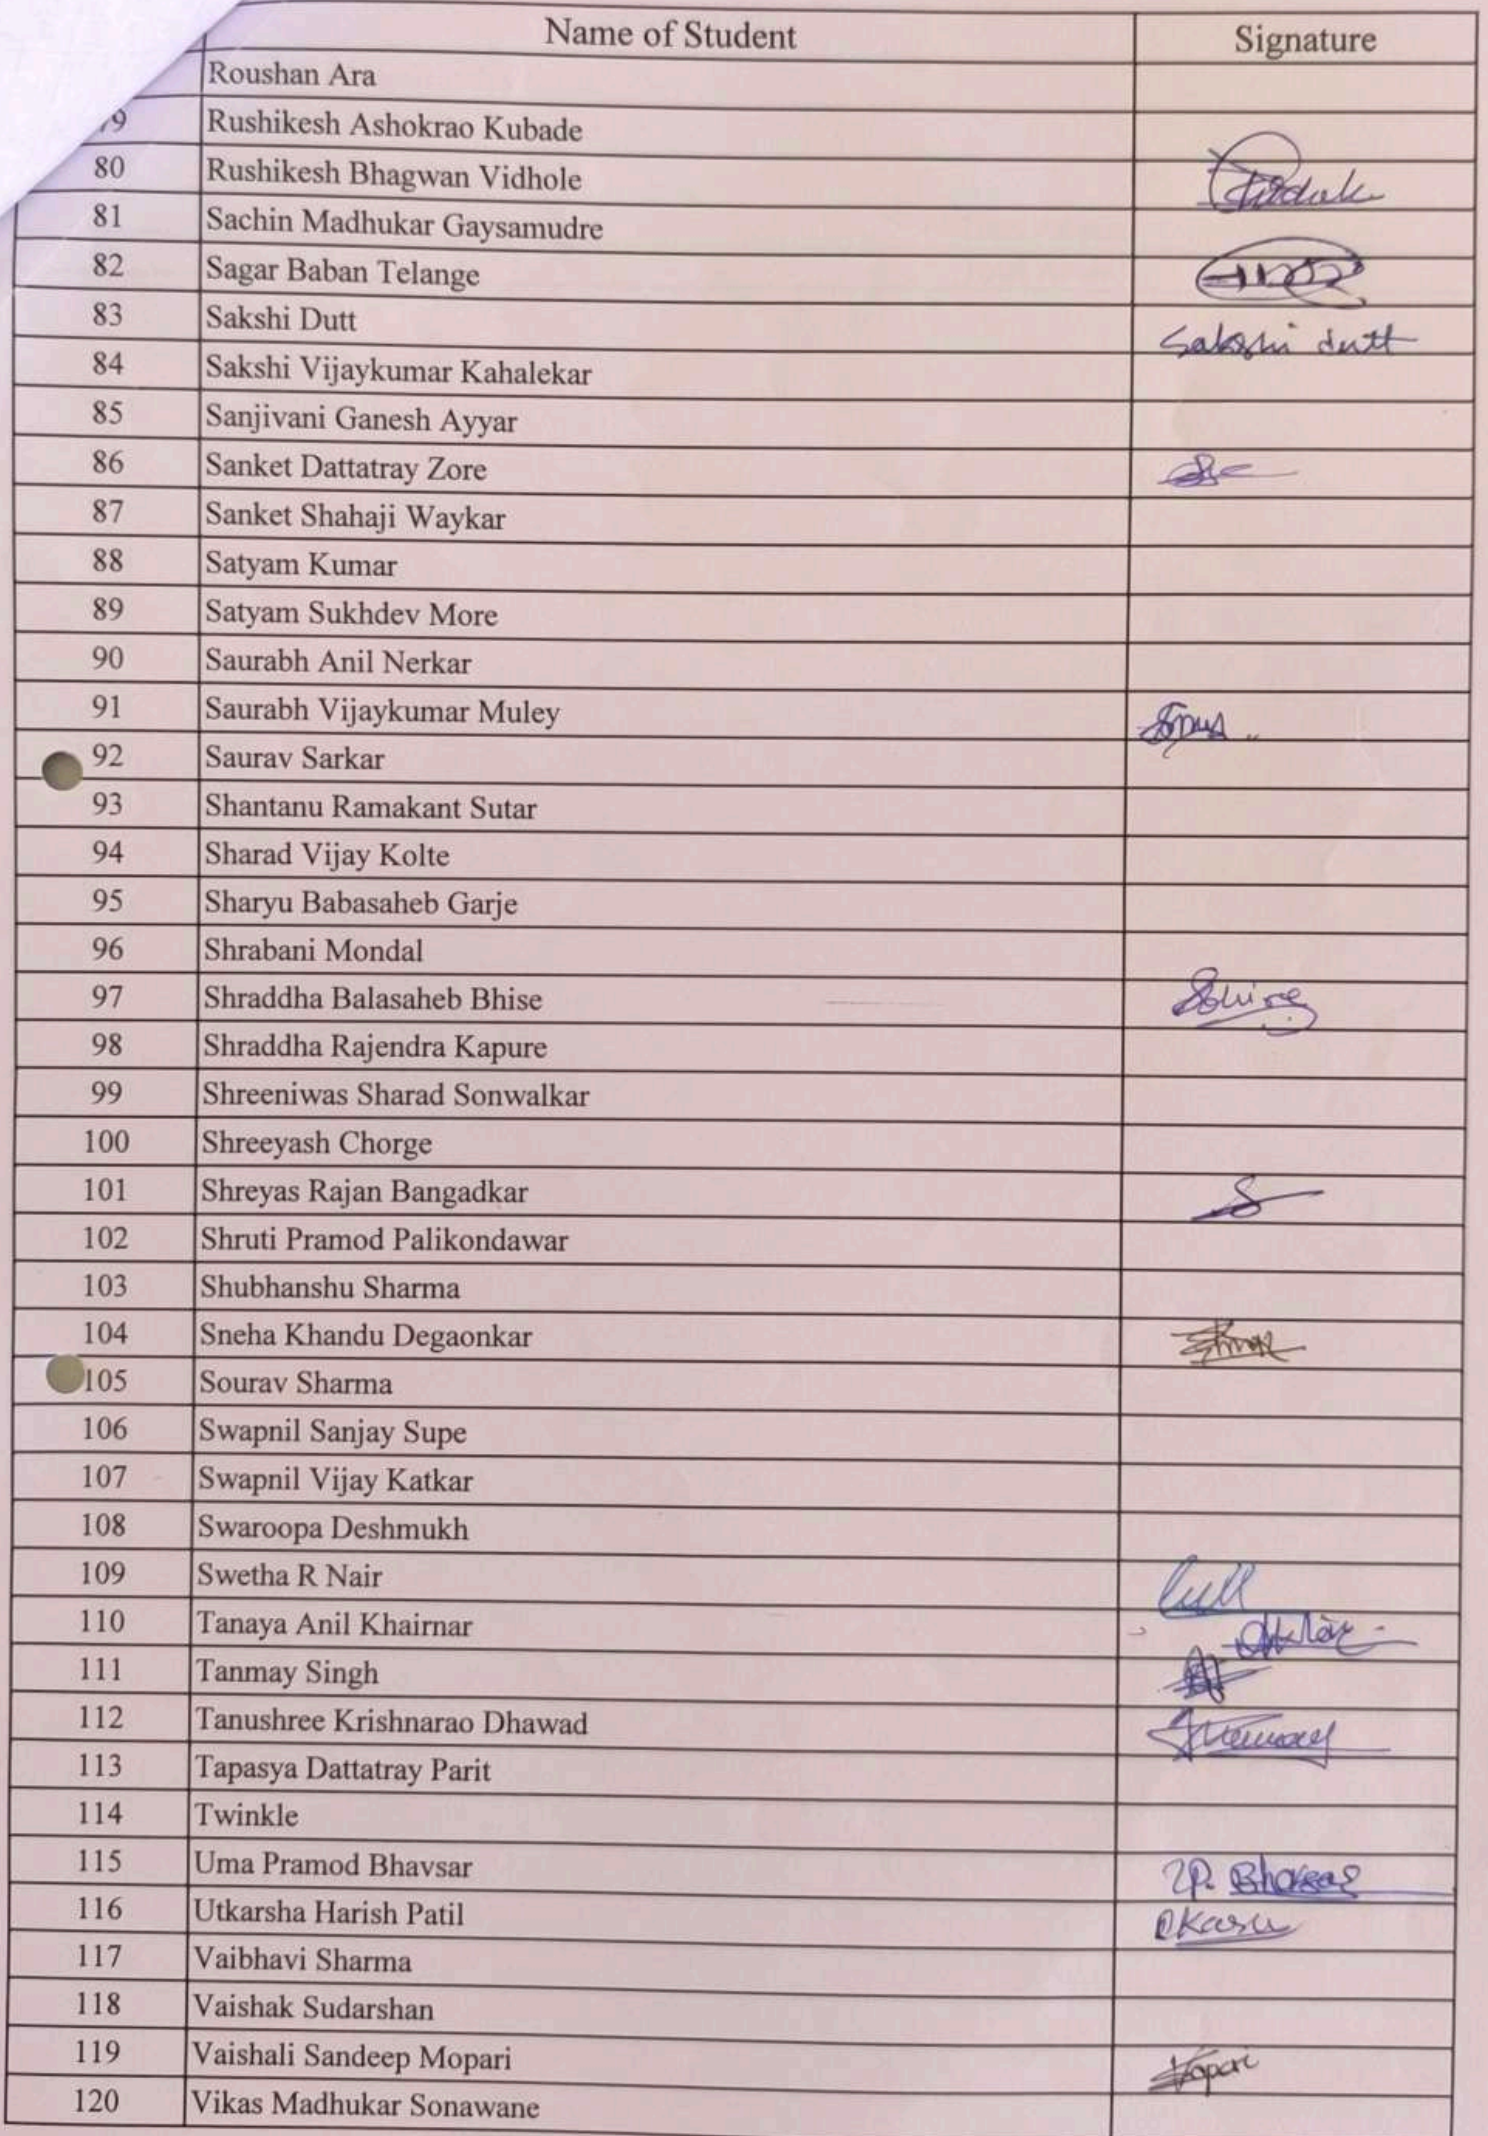 Name of Student Signature
Roushan Ara
79 Rushikesh Ashokrao Kubade
80 Rushikesh Bhagwan Vidhole
81 Sachin Madhukar Gaysamudre
82 Sagar Baban Telange
83 Sakshi Dutt Sakshi dutt
84 Sakshi Vijaykumar Kahalekar
85 Sanjivani Ganesh Ayyar
86 Sanket Dattatray Zore
87 Sanket Shahaji Waykar
88 Satyam Kumar
89 Satyam Sukhdev More
90 Saurabh Anil Nerkar
91 Saurabh Vijaykumar Muley
92 Saurav Sarkar
93 Shantanu Ramakant Sutar
94 Sharad Vijay Kolte
95 Sharyu Babasaheb Garje
96 Shrabani Mondal
97 Shraddha Balasaheb Bhise
98 Shraddha Rajendra Kapure
99 Shreeniwas Sharad Sonwalkar
100 Shreeyash Chorge
101 Shreyas Rajan Bangadkar
102 Shruti Pramod Palikondawar
103 Shubhanshu Sharma
104 Sneha Khandu Degaonkar
105 Sourav Sharma
106 Swapnil Sanjay Supe
107 Swapnil Vijay Katkar
108 Swaroopa Deshmukh
109 Swetha R Nair
110 Tanaya Anil Khairnar
111 Tanmay Singh
112 Tanushree Krishnarao Dhawad
113 Tapasya Dattatray Parit
114 Twinkle
115 Uma Pramod Bhavsar
116 Utkarsha Harish Patil
117 Vaibhavi Sharma
118 Vaishak Sudarshan
119 Vaishali Sandeep Mopari
120 Vikas Madhukar Sonawane